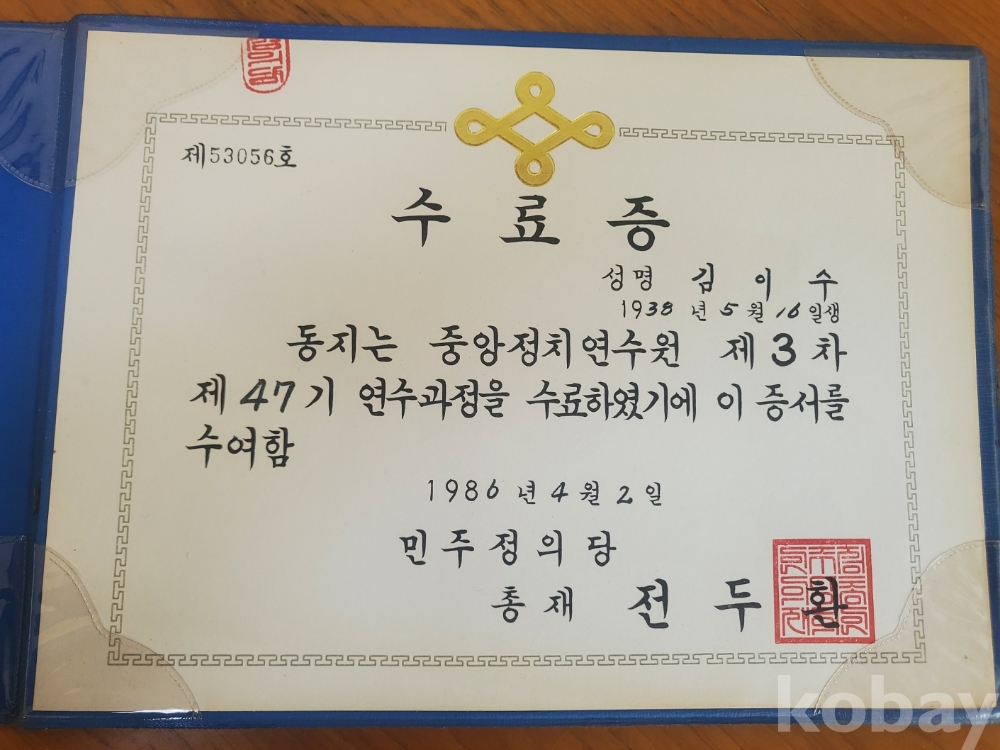 제53056호
수료증
성명 김이수
1938년 5월 16일생
동지는 중앙정치연수원 제3차
제47기 연수과정을 수료하였기에 이 증서를
수여함
1986년 4월 2일
민주정의당
총재 전두환
kobay